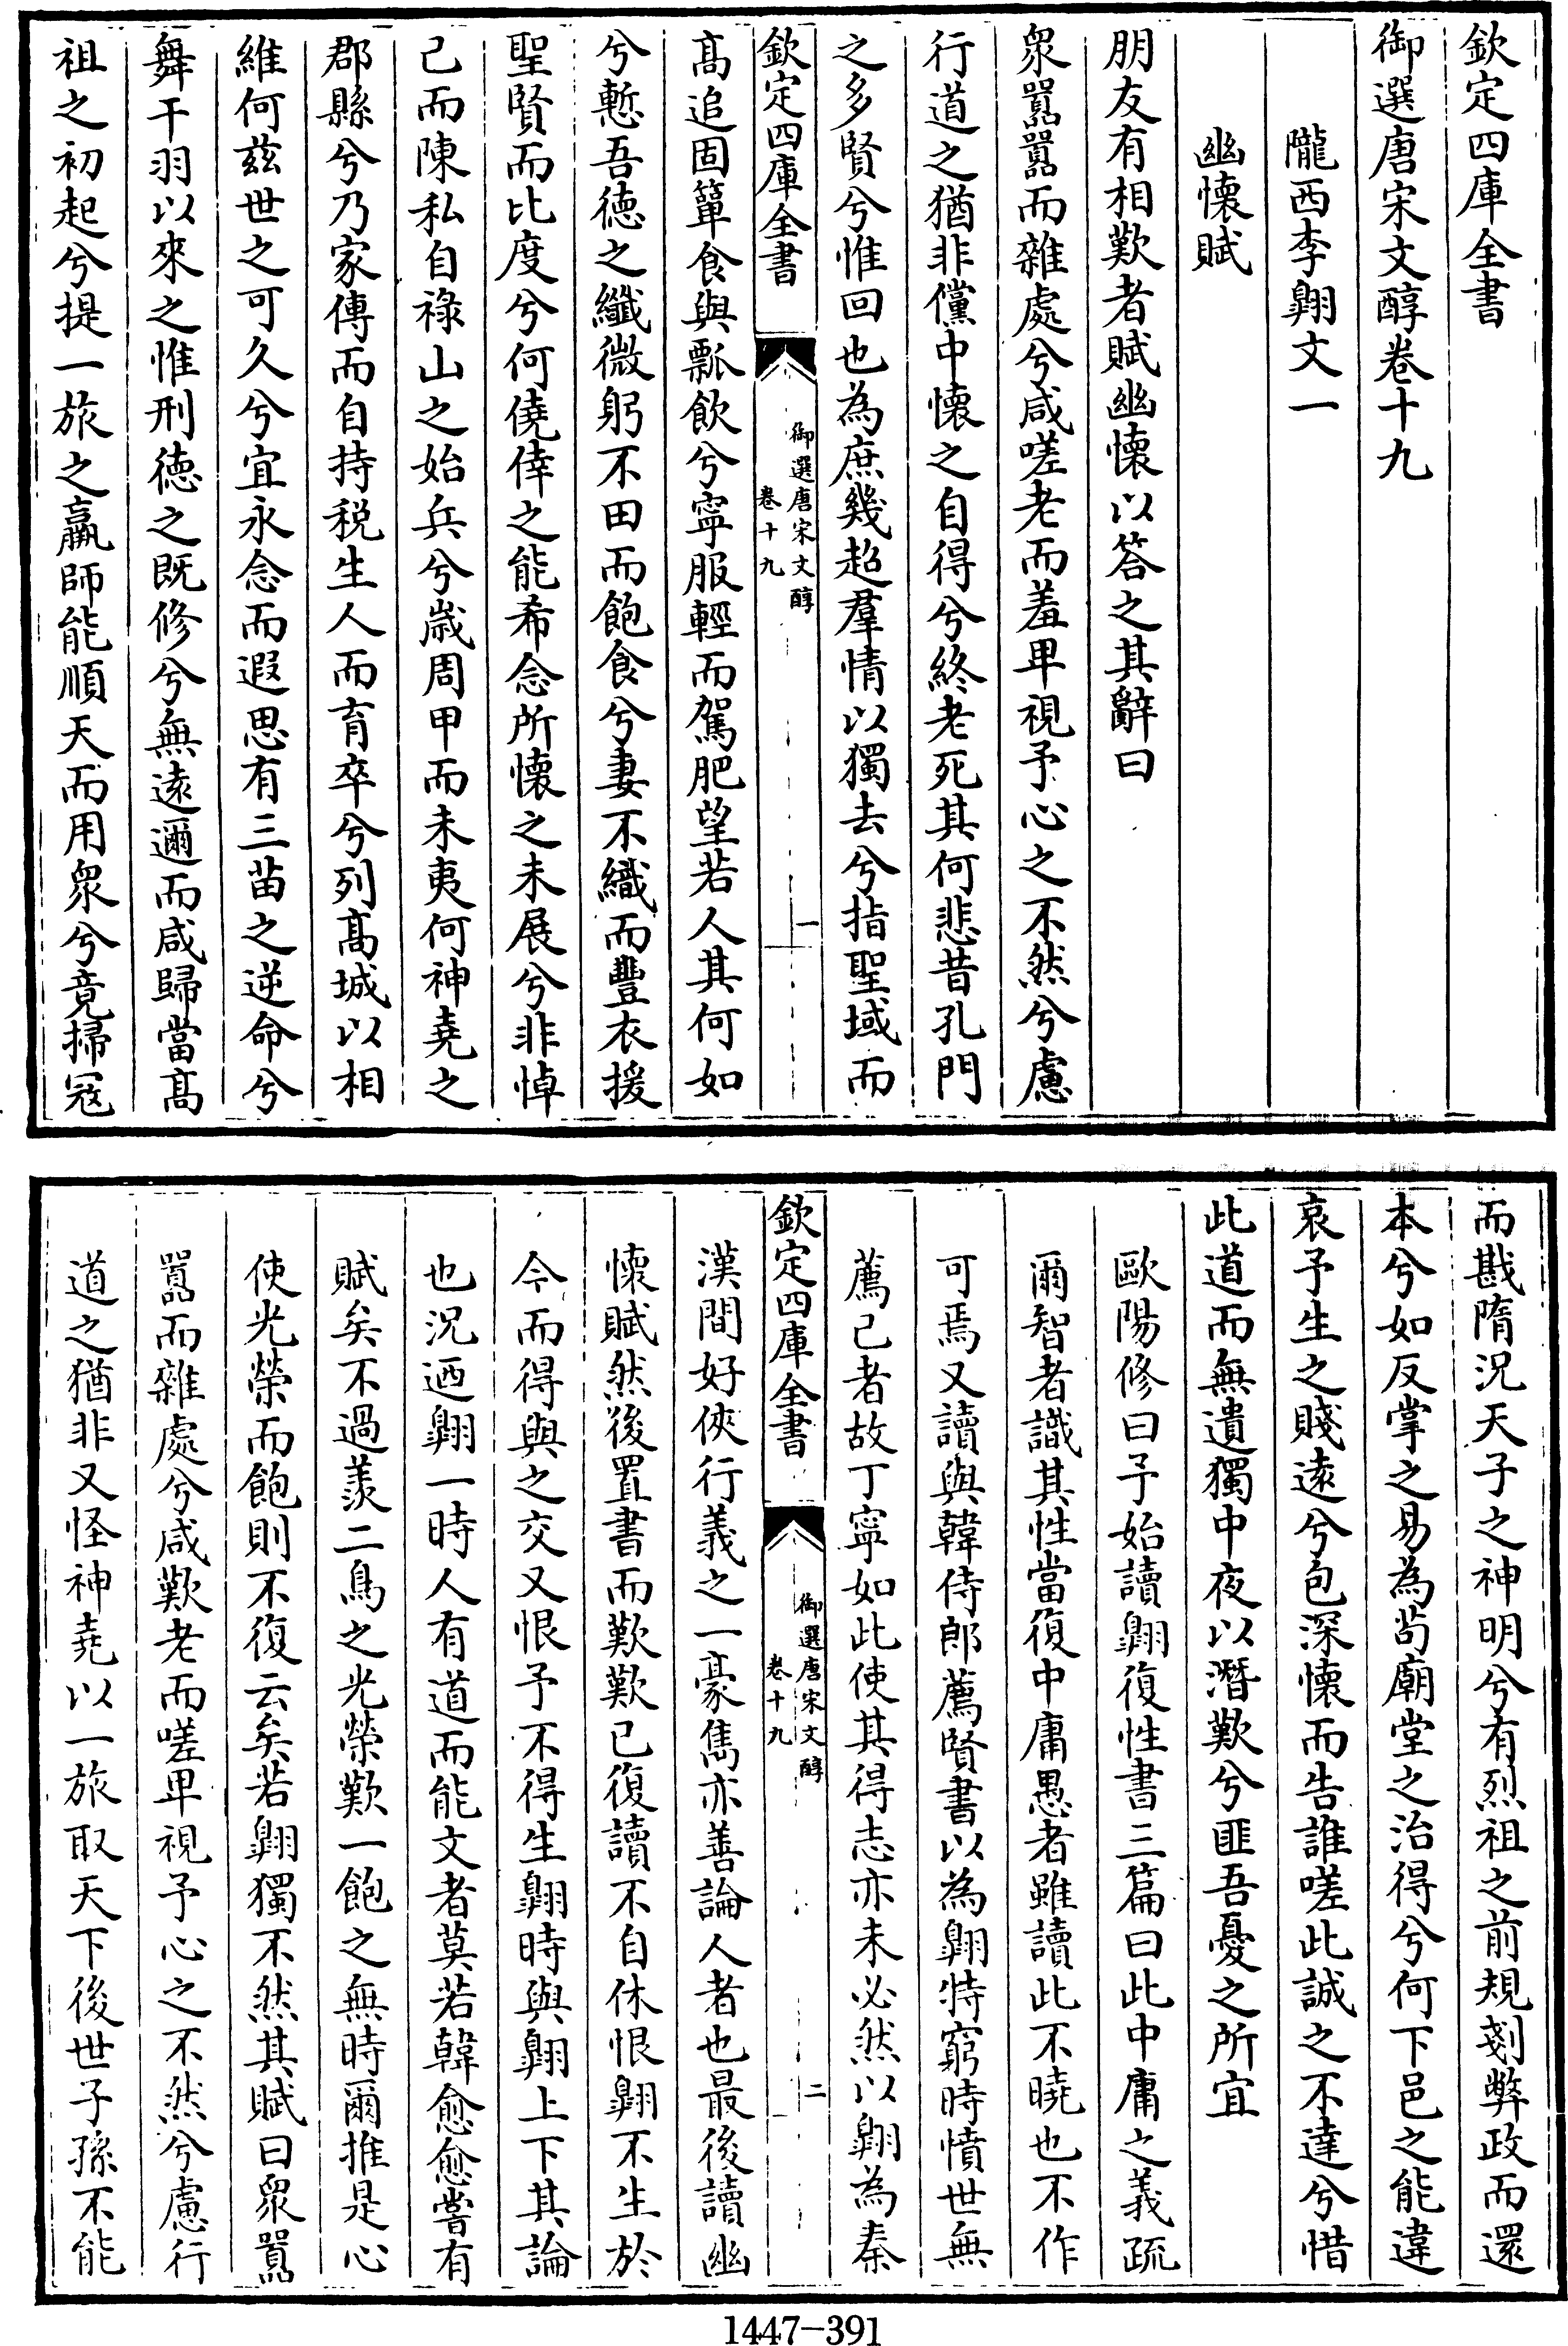 欽定四庫全書
御選唐宋文醇卷十九
隴西李翺文一
幽懷賦
朋友有相歎者賦幽懷以答之其辭曰
衆囂囂而雜處兮咸嗟老而羞卑視予心之不然兮慮
行道之猶非儻中懷之自得兮終老死其何悲昔孔門
之多賢兮惟回也為庶幾超羣情以獨去兮指聖域而
髙追固簞食與瓢飲兮寧服輕而駕肥望若人其何如
兮慙吾徳之纖微躬不田而飽食兮妻不織而豐衣援
聖賢而比度兮何僥倖之能希念所懷之未展兮非悼
己而陳私自祿山之始兵兮嵗周甲而未夷何神堯之
郡縣兮乃家傳而自持税生人而育卒兮列髙城以相
維何兹世之可久兮宜永念而遐思有三苗之逆命兮
舞干羽以來之惟刑徳之既修兮無逺邇而咸歸當髙
祖之初起兮提一旅之羸師能順天而用衆兮竟掃冦
欽定四庫全書
御選唐宋文醇
卷十九
一
而戡隋況天子之神明兮有烈祖之前規剗弊政而還
本兮如反掌之易為茍廟堂之治得兮何下邑之能違
哀予生之賤逺兮包深懷而告誰嗟此誠之不達兮惜
此道而無遺獨中夜以潛歎兮匪吾憂之所宜
歐陽修曰予始讀翺復性書三篇曰此中庸之義疏
爾智者識其性當復中庸愚者雖讀此不曉也不作
可焉又讀與韓侍郎薦賢書以為翺特窮時憤世無
薦己者故丁寧如此使其得志亦未必然以翺為秦
漢間好俠行義之一豪雋亦善論人者也最後讀幽
懷賦然後置書而歎歎已復讀不自休恨翺不生於
今而得與之交又恨予不得生翺時與翺上下其論
也況迺翺一時人有道而能文者莫若韓愈愈嘗有
賦矣不過羨二鳥之光榮歎一飽之無時爾推是心
使光榮而飽則不復云矣若翺獨不然其賦曰衆囂
囂而雜處兮咸歎老而嗟卑視予心之不然兮慮行
道之猶非又怪神堯以一旅取天下後世子孫不能
欽定四庫全書
御選唐宋文醇
卷十九
二
1447-391